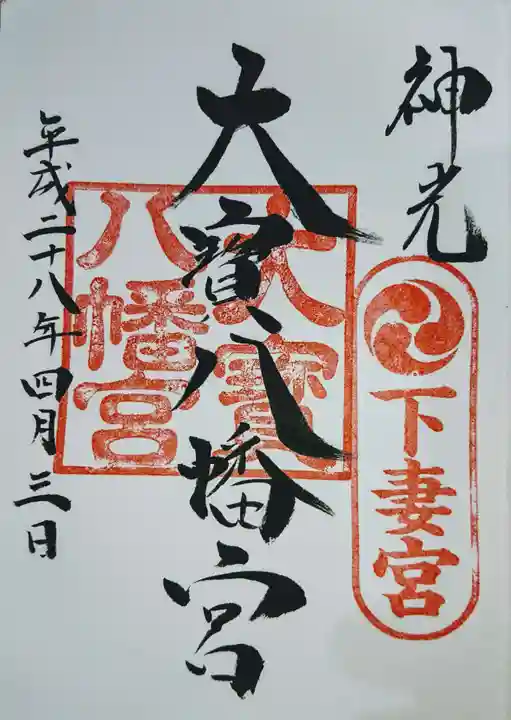 神光
下妻宮
大寶八幡宮
大寶
八幡宮
平成二十八年四月三日